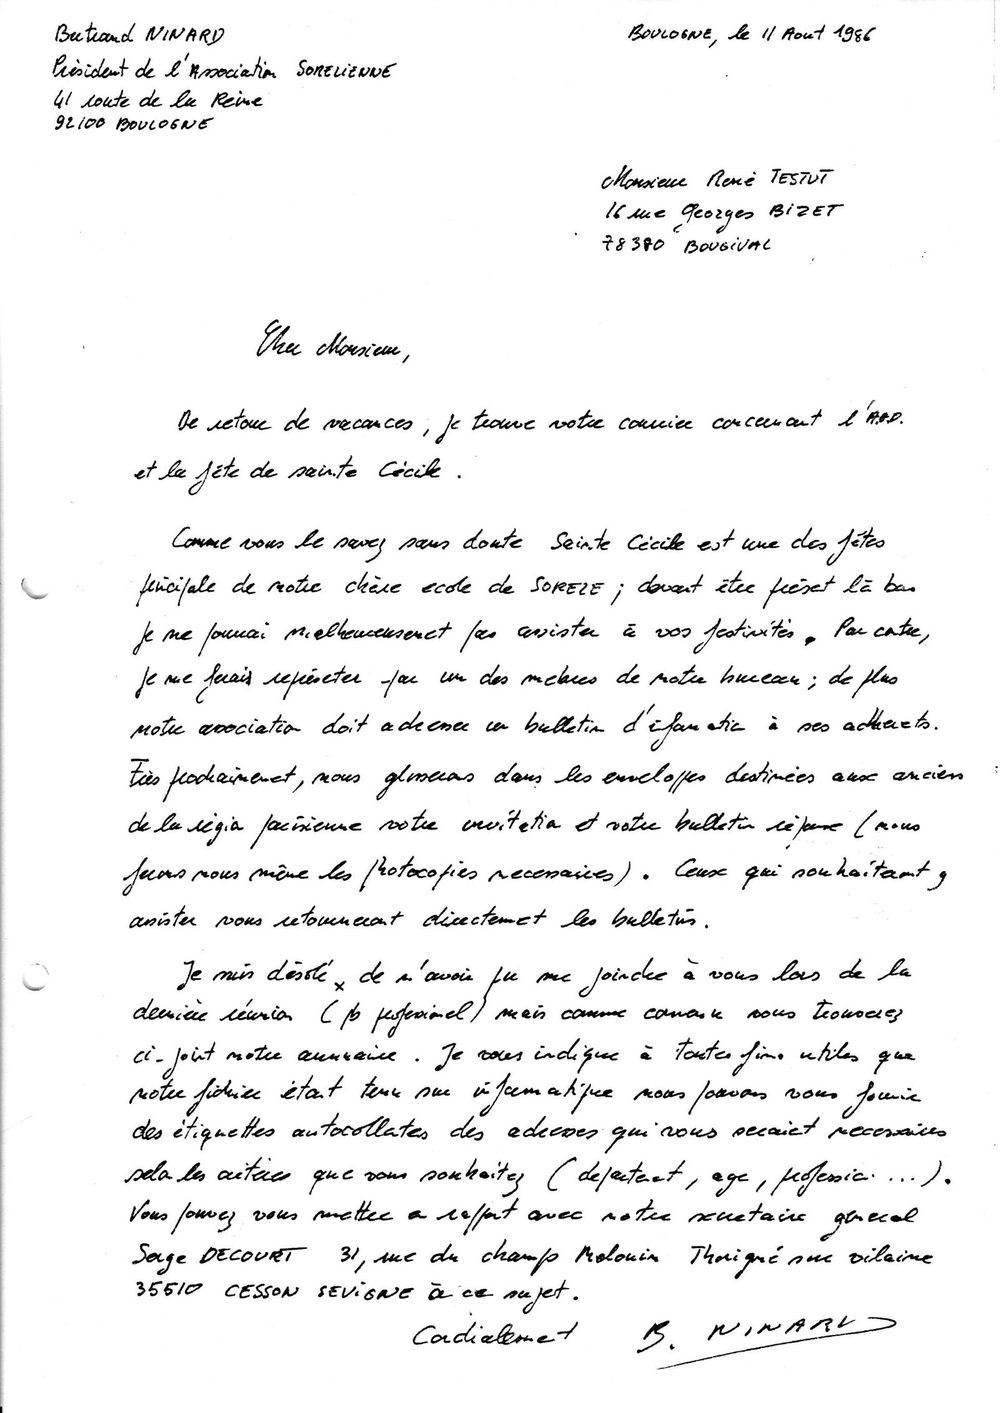 Bertrand NINARD
Président de l'Association SORELIENNE
41 route de la Reine
92100 BOULOGNE
BOULOGNE, le 11 Aout 1986
Monsieur René TESTUT
16 rue Georges BIZET
78380 BOUGIVAL
Cher Monsieur,
De retour de vacances, je trouve votre courrier concernant l'A.D.
et la fête de sainte Cécile.
Comme vous le savez sans doute Sainte Cécile est une des fêtes
principale de notre chère ecole de SOREZE ; devant être présent là bas
je ne pourrai malheureusement pas assister à vos festivités. Par contre,
je me ferais représenter par un des membres de notre bureau ; de plus
notre association doit adresser un bulletin d'information à ses adhérents.
Très prochainement, nous glisserons dans les enveloppes destinées aux anciens
de la région parisienne votre invitation et votre bulletin réponse (nous
ferons nous même les photocopies necessaires). Ceux qui souhaiteront y
assister vous retourneront directement les bulletins.
Je suis désolé de n'avoir pu me joindre à vous lors de la
dernière réunion (pb professionnel) mais comme convenu vous trouverez
ci-joint notre annuaire. Je vous indique à toutes fins utiles que
notre fichier étant tenu sur informatique nous pouvons vous fournir
des étiquettes autocollantes des adresses qui vous seraient necessaires
selon les critères que vous souhaitez (departement, age, profession ...).
Vous pouvez vous mettre en rapport avec notre secretaire général
Serge DECOURT 31, rue du champ Malouin Thorigné sur vilaine
35510 CESSON SEVIGNE à ce sujet.
Cordialement B. NINARD